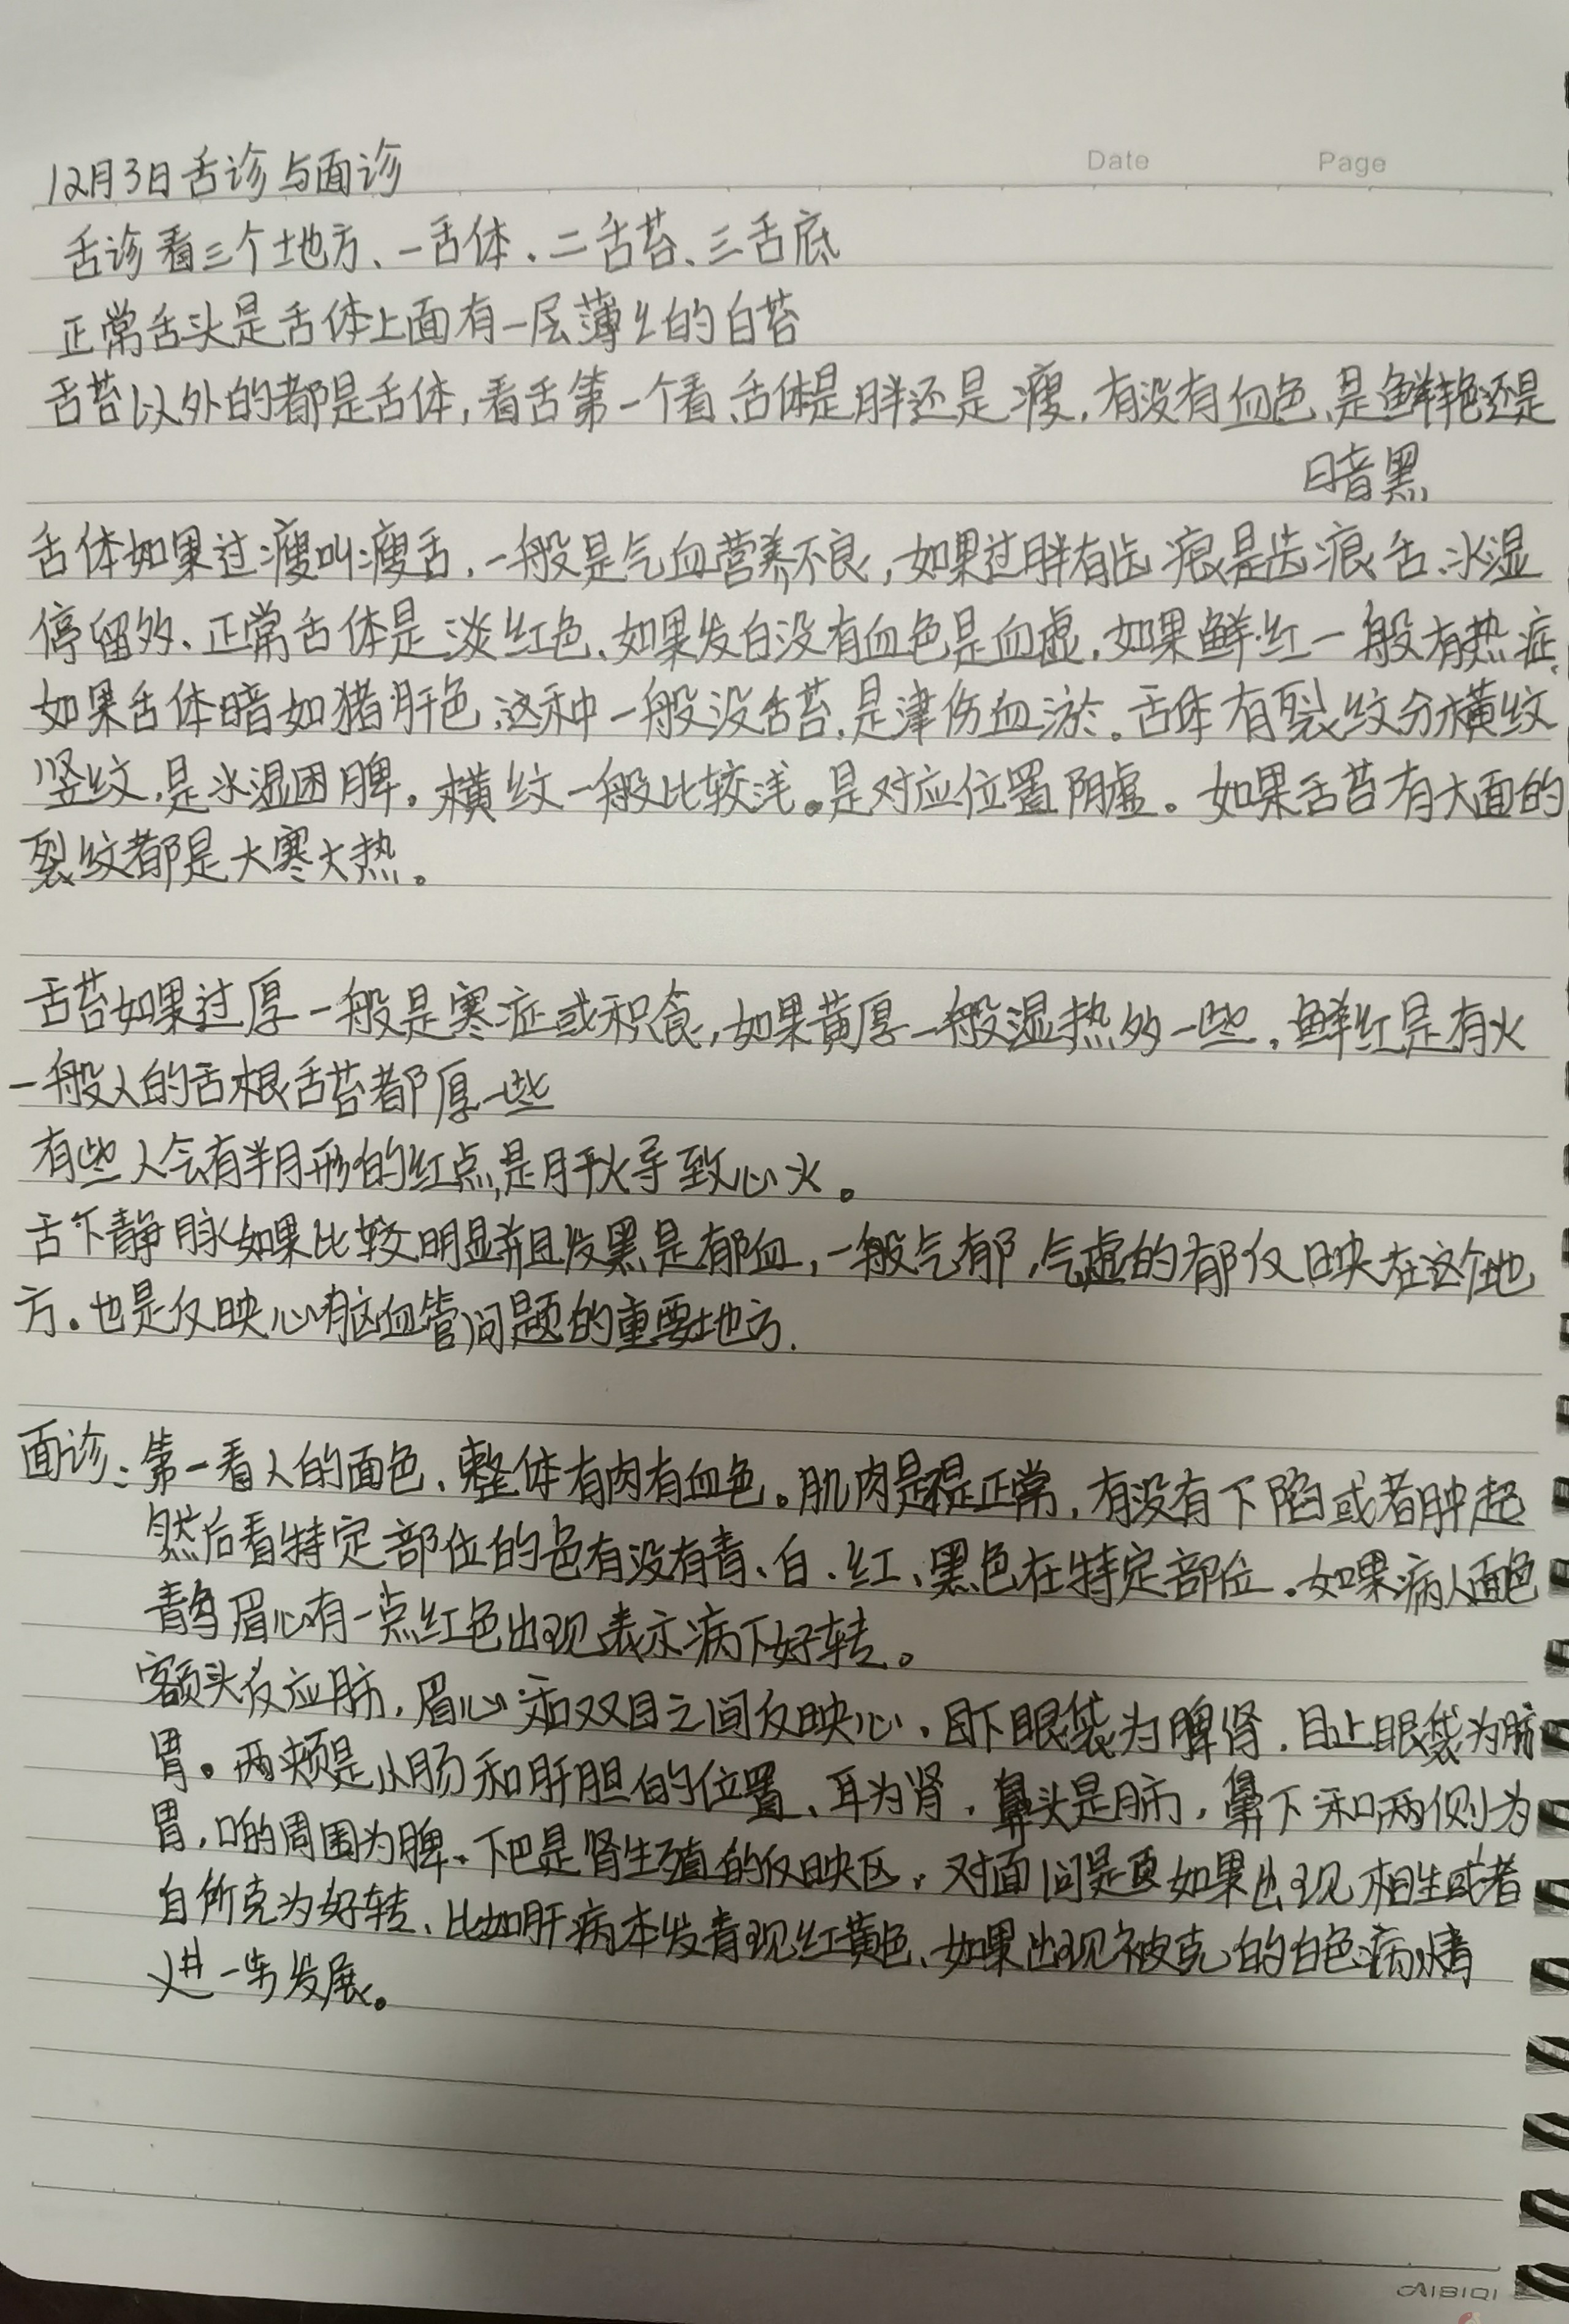 Date Page
12月3日舌诊与面诊
舌诊看三个地方、一舌体.二舌苔、三舌底
正常舌头是舌体上面有一层薄々的白苔
舌苔以外的都是舌体,看舌第一个看、舌体是胖还是瘦,有没有血色、是鲜艳还是
暗黑
舌体如果过瘦叫瘦舌,一般是气血营养不良,如果过胖有齿痕是齿痕舌.水湿
停留多、正常舌体是淡红色、如果发白没有血色是血虚.如果鲜红一般有热症,
如果舌体暗如猪肝色,这种一般没舌苔,是津伤血淤。舌体有裂纹分横纹
竖纹,是水湿困脾。横纹一般比较浅。是对应位置阴虚。如果舌苔有大面的
裂纹都是大寒大热。
舌苔如果过厚一般是寒症或积食,如果黄厚一般湿热多一些,鲜红是有火
一般人的舌根舌苔都厚一些
有些人会有半月形的红点,是肝火导致心火。
舌下静脉如果比较明显并且发黑是郁血,一般气郁,气虚的郁反映在这个地
方。也是反映心脑血管问题的重要地方.
面诊:第一看人的面色、整体有肉有血色。肌肉是不是正常,有没有下陷或者肿起
然后看特定部位的色有没有青、白、红、黑色在特定部位.如果病人面色
青眉心有一点红色出现表示病下好转。
额头反应肺,眉心和双目之间反映心.目下眼袋为脾肾.目上眼袋为肺
胃。两颊是小肠和肝胆的位置、耳为肾.鼻头是肺,鼻下和两侧为
胃,口的周围为脾.下巴是肾生殖的反映区。对面问是更如果出现相生或者
自所克为好转、比如肝病本发青现红黄色、如果出现被克的白色病情
进一步发展。
AIBIQI